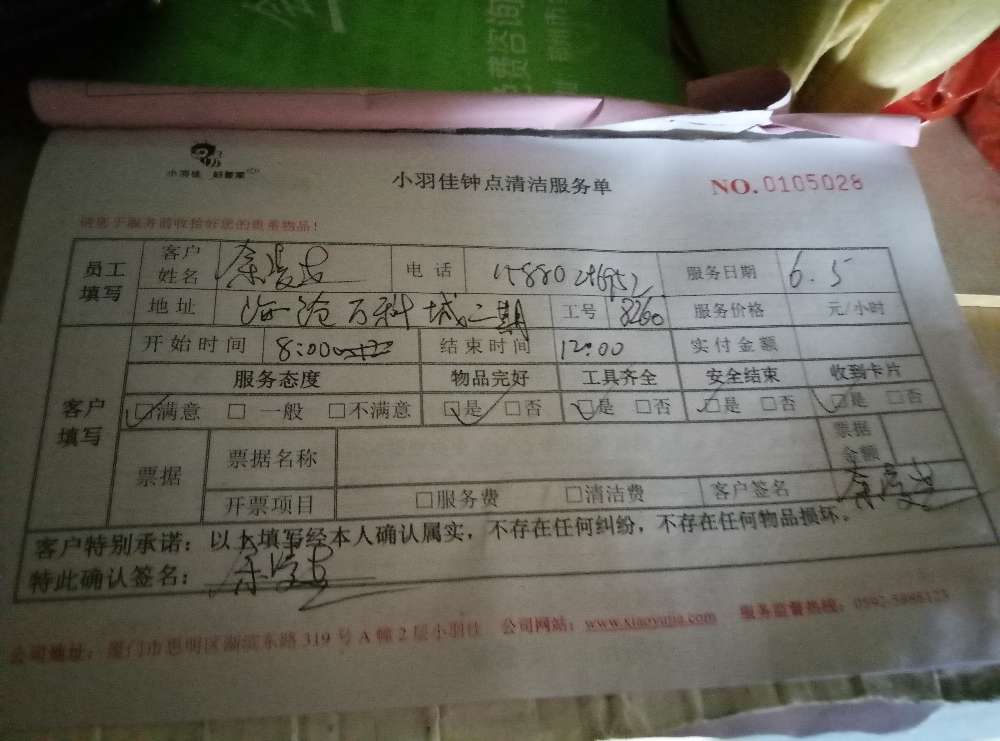 费咨询
小羽佳 好管家
小羽佳钟点清洁服务单
NO.0105028
请您于服务前收拾好您的贵重物品!
员工填写 客户姓名 电话 服务日期 6.5
地址 海沧万科城二期 工号 8260 服务价格 元/小时
客户填写 开始时间 8:00 结束时间 12:00 实付金额
服务态度 物品完好 工具齐全 安全结束 收到卡片
☑满意 □一般 □不满意 ☑是 □否 ☑是 □否 ☑是 □否 ☑是 □否
票据 票据名称 票据金额
开票项目 □服务费 □清洁费 客户签名
客户特别承诺:以上填写经本人确认属实,不存在任何纠纷,不存在任何物品损坏。
特此确认签名:
公司地址:厦门市思明区湖滨东路319号A幢2层小羽佳 公司网站:www.xiaoyujia.com 服务监督热线: